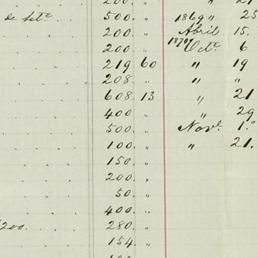 200. " " 21
& Sete 500. " 1869 " 25
200. " Abril 15.
200 " 1870 Octe 6
219 60 " " 19
208. " " "
608. 13 " 21
400 " " 29
500. " Novr 1º
100. " " 21.
150. "
200. "
50. "
400. "
/200. 280. "
154. "